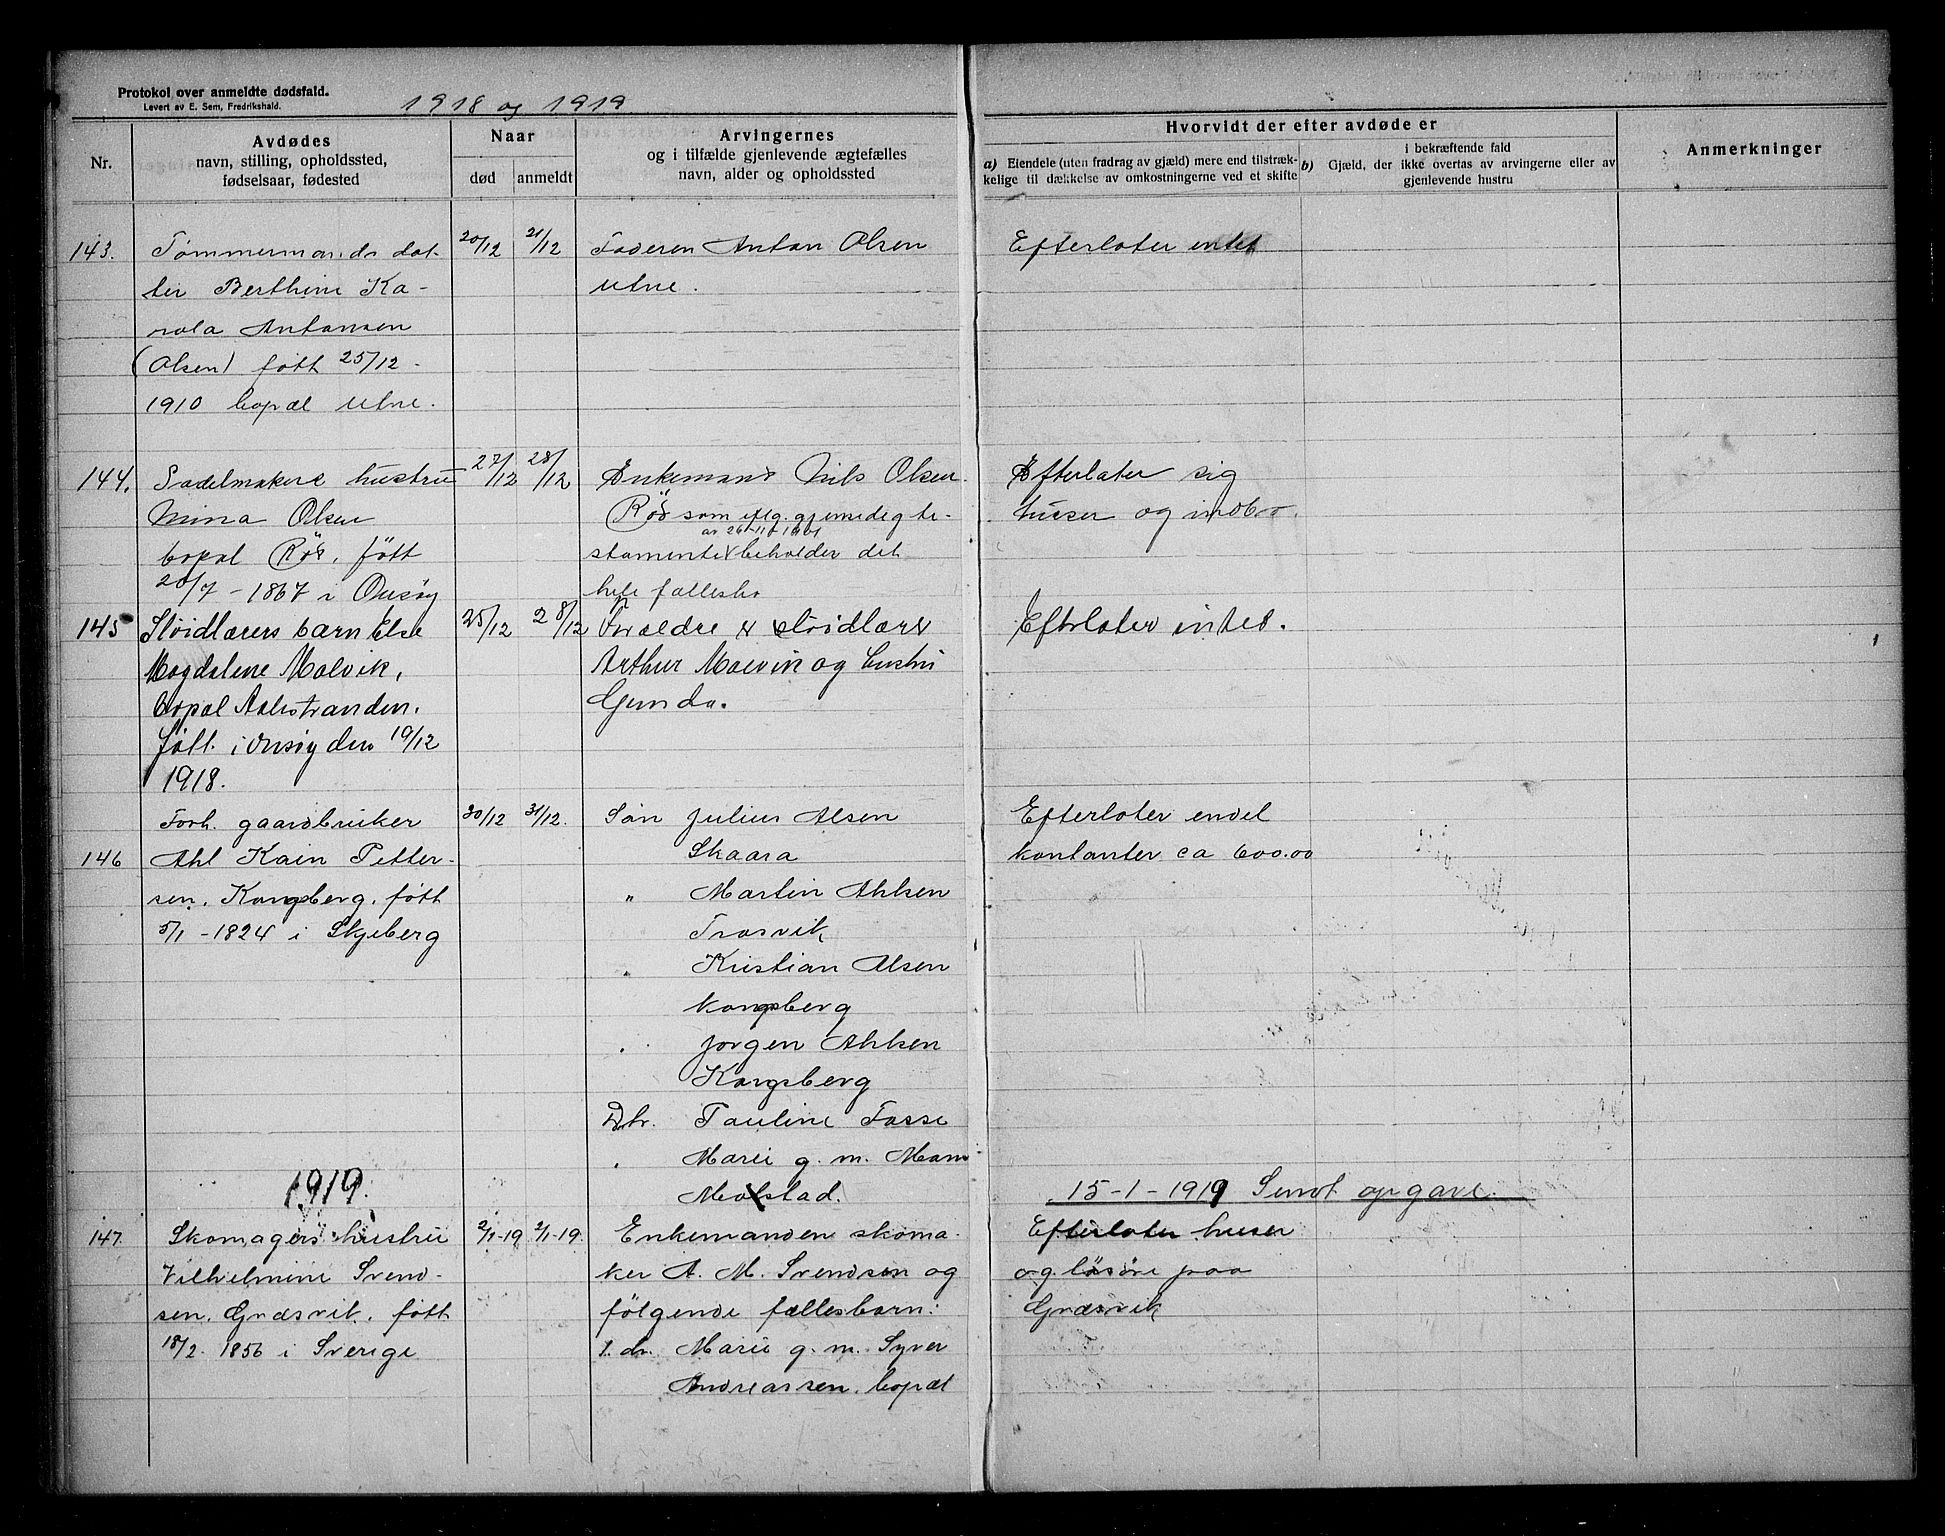 Protokol over anmeldte dødsfald.
Levert av E. Sem, Fredrikshald.
1918 og 1919
Nr.
Avdødes
navn, stilling, opholdssted,
fødselsaar, fødested
Naar
død
anmeldt
Arvingernes
og i tilfælde gjenlevende ægtefælles
navn, alder og opholdssted
Hvorvidt der efter avdøde er
a) Eiendele (uten fradrag av gjæld) mere end tilstræk-
kelige til dækkelse av omkostningerne ved et skifte
i bekræftende fald
b) Gjæld, der ikke overtas av arvingerne eller av
gjenlevende hustru
Anmerkninger
143.
Tømmermands dat-
ter Berthine Ka-
rola Antonsen
(Olsen) født 25/12 -
1910 bopæl Utne.
20/12
21/12
Faderen Anton Olsen
Utne.
Efterlater intet
144.
Sadelmakers hustru
Mina Olsen
bopæl Røs, født
20/7 - 1867 i Onsøy
27/12
28/12
Enkemand Nils Olsen
Røs som iflg. gjensidig te-
stamente beholder det
hele fællesbo
Efterlater sig
huser og indbo.
145
Sløidlærers barn Else
Magdalene Malvik,
bopæl Aalestranden.
født i Onsøy den 19/12
1918.
25/12
28/12
Foræld­re sløidlærer
Arthur Malvin og hustru
Gunda.
Efterlater intet.
146
Forh. gaardbruker
Ahl Kain Petter-
sen, Kongsberg, født
5/1 - 1824 i Skjeberg
30/12
31/12.
Søn Julius Alsen
Skaara
" Martin Ahlsen
Trosvik
" Kristian Alsen
Kongsberg
" Jørgen Ahlsen
Kongsberg
Dtr. Pauline Fosse
" Marie g. m. Mam
Molstad.
Efterlater endel
kontanter ca 600.00
15-1-1919 Sendt opgave.
1919.
147.
Skomagers hustru
Vilhelmine Svend-
sen, Græsvik, født
18/2 1856 i Sverige
2/1-19
2/1-19.
Enkemanden skoma-
ker A. M. Svendsen og
følgende fællesbarn:
1. dr. Marie g. m. Syver
Andreassen, bopæl
Efterlater huser
og løsøre paa
Græsvik